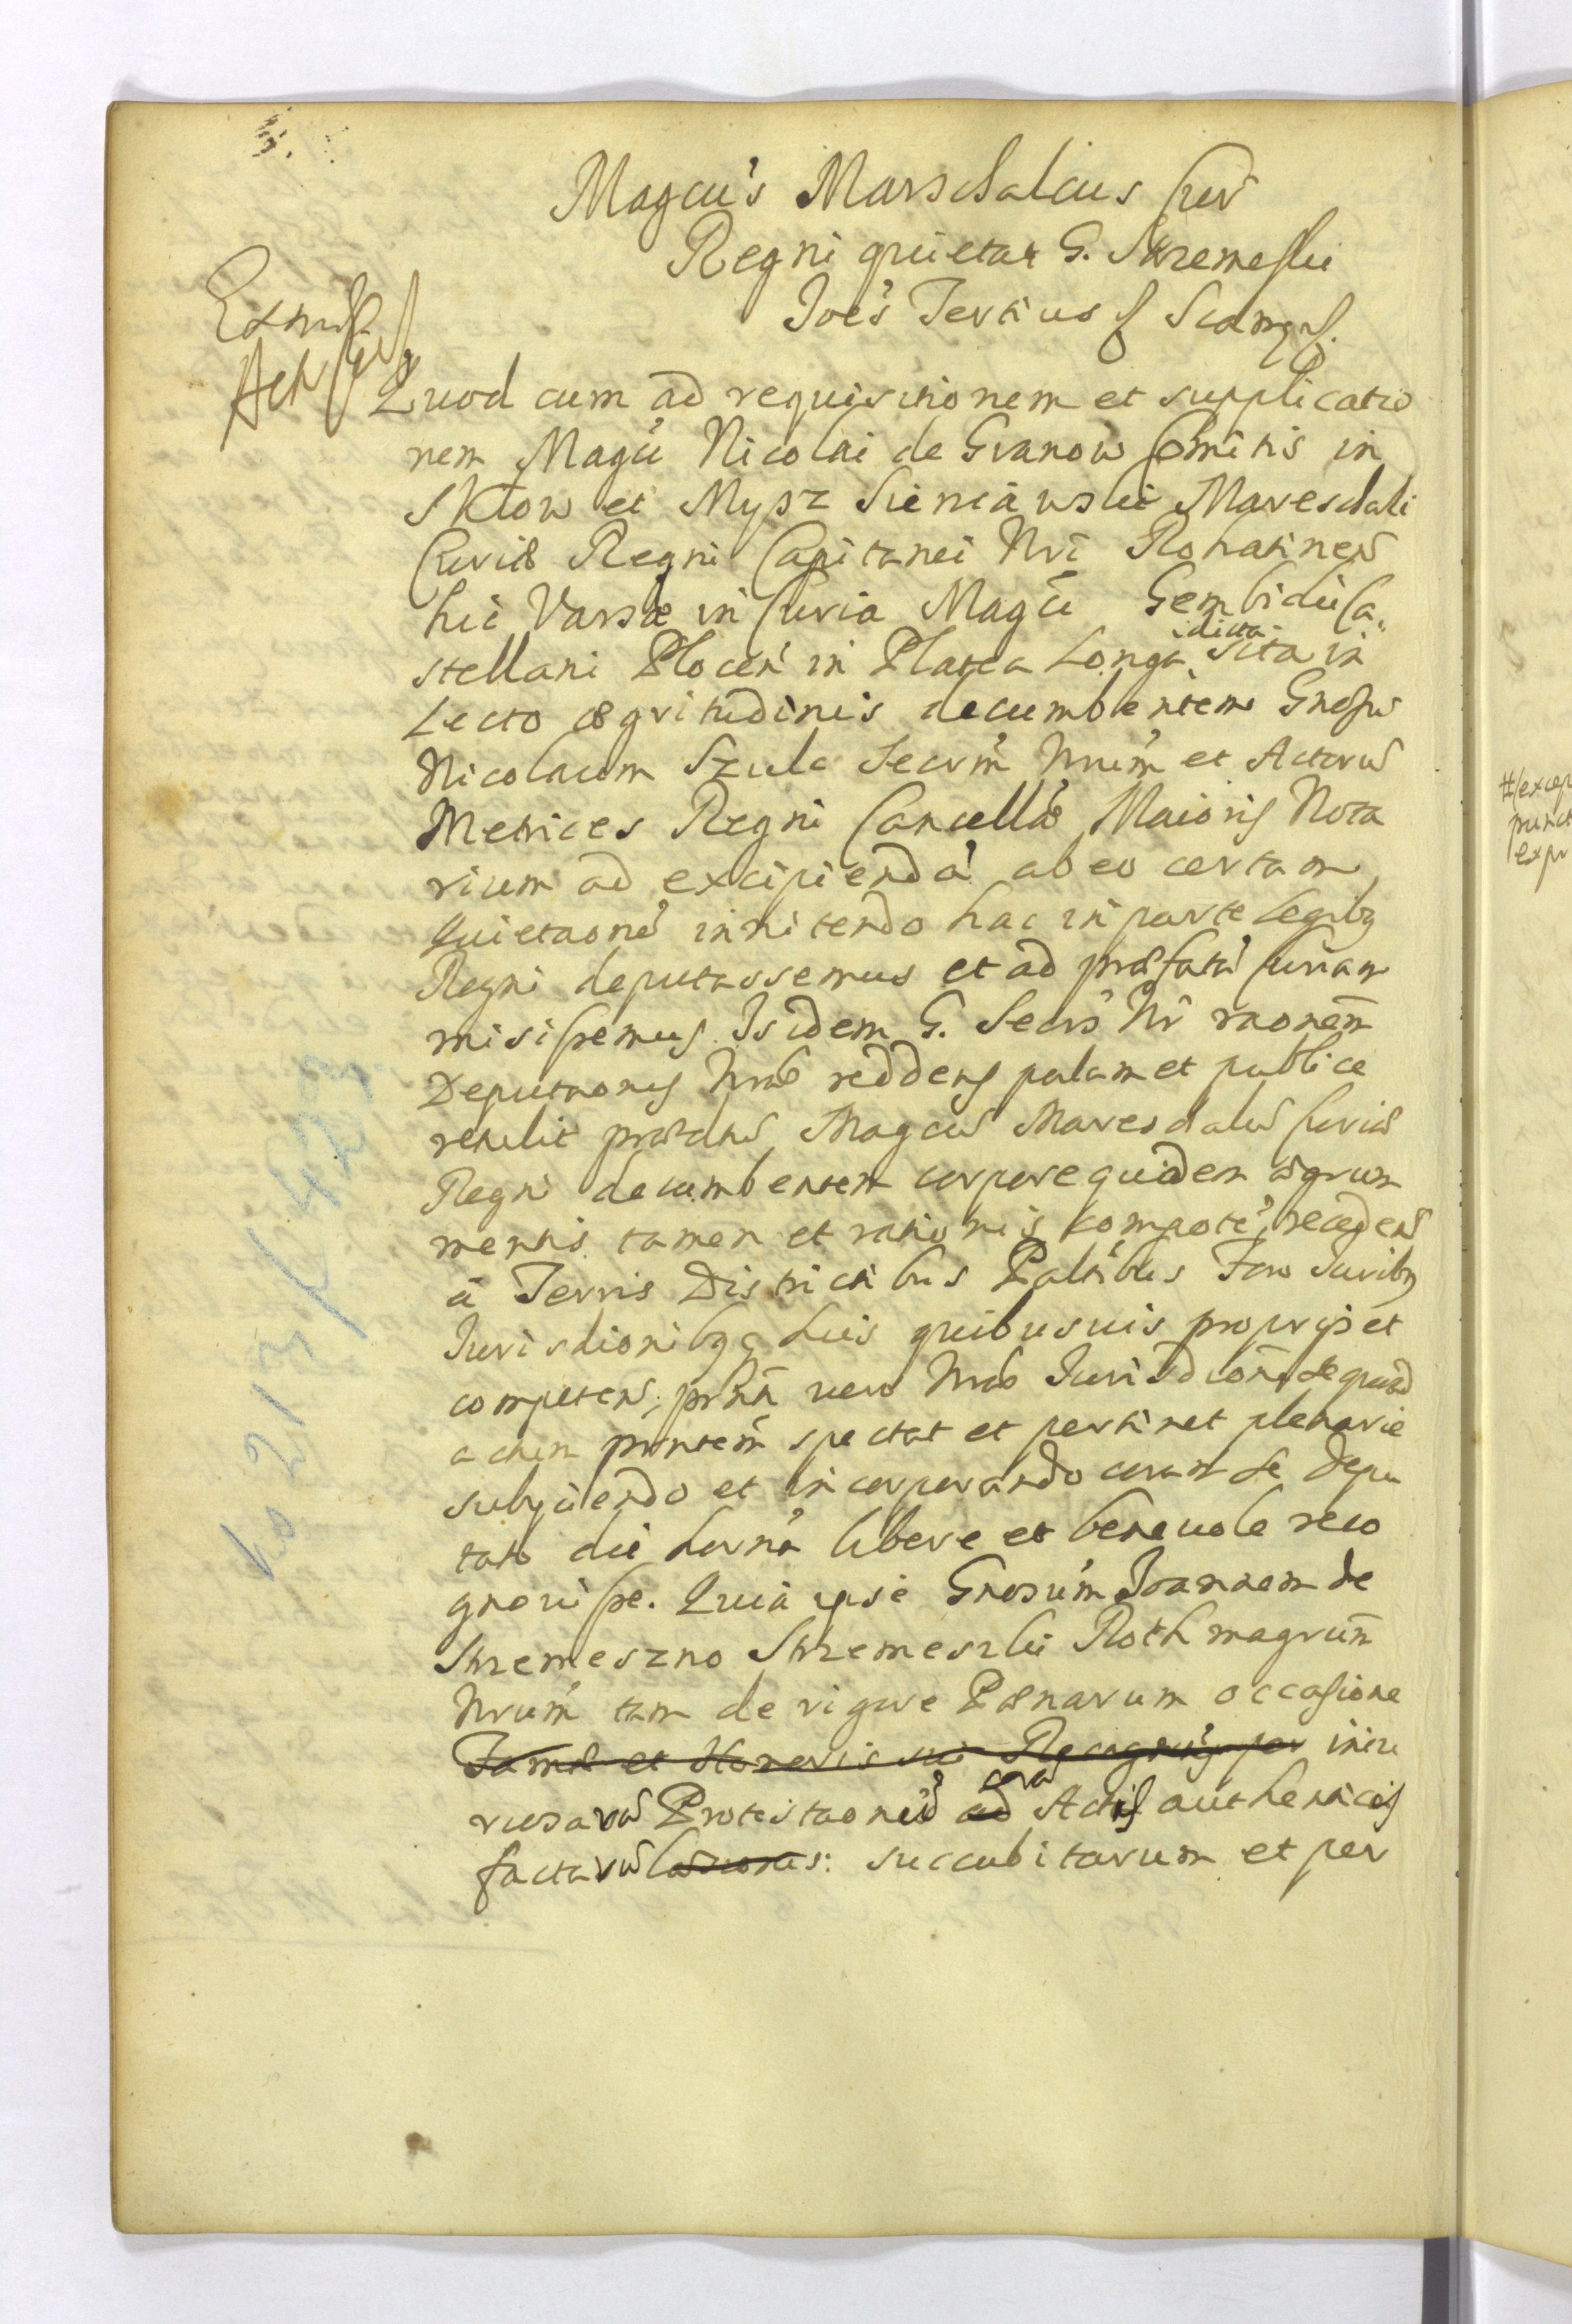 Magcu's Marschalcus Cur
Regni quietat G. Skrzemeski
Joe's Tertius
Quod cum ad requisitionem et supplicatio
nem Magci Nicolai de Granow Comitis in
Sklow et Mysz Sieniawski Mareschali
Curiæ Regni Capitanei Nri Rohatinen
hic Varsæ in Curia Magci Gembicki Ca,,
stellani Plocen in Platea Longa dicta sita in
Lecto ægritudinis decumbentem Gnosu
Nicolaum Szulc Secrm Nrum et Actoru
Metrices Regni Cancellæ Maioris Nota
rium ad excipienda' ab eo certam
quietaone' innitendo hac in parte legibq
Regni deputassemus et ad præfata' Curiam
misissemus. Isidem G. Secrs Nr raonem
Deputaonis Nræ reddens palam et publice
retulit prædtu Magcu Mareschalu Curiæ
Regni decumbentem corpore quidem ægrum
mentis tamen et rationis compote' recedens
à Terris Districtibus Palatibus Foro Juribq
Jurisdionibqq suis quibusuis proprijs et
competen, prnti vero Nræ Jurisdioni se quoad
actum prntem spectat et pertinet plenarie
subijciendo et incorporando coram se depu
tato die herna libere et beneuole reco
gnouisse. Quia ipse Gnosum Joannem de
Skrzemeszno Skrzemeski Rothmagrum
Nrum tam de rigore Pænarum occasione
Famæ et Honoris sui
rusaru Protestaonu ad cora Actis authenticis
factaru succubitarum et per
No 213
#/excep
punct
expr